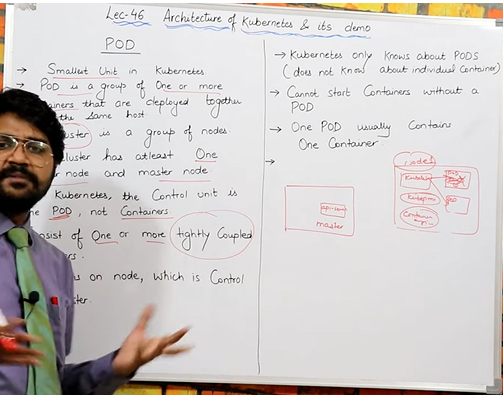 Lec-46 Architecture of Kubernetes & its demo
POD
→ Smallest Unit in Kubernetes
→ POD is a group of One or more
ainers that are deployed together
the same host
luster is a group of nodes
luster has atleast One
r node and master node
Kubernetes, the Control unit is
POD, not Containers
nsist of One or more tightly Coupled
ers.
s on node, which is Control
ster.
→ Kubernetes only knows about PODS
(does not know about individual Container)
→ Cannot start Containers without a
POD
→ One POD usually Contains
One Container.
→
master
node1
POD